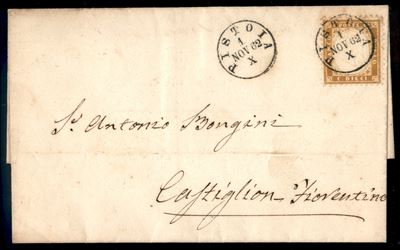 PISTOIA
1
NOV 62
X
PISTOIA
1
NOV 62
X
C. DIECI
Sr. Antonio Bongini
Castiglion-Fiorentino